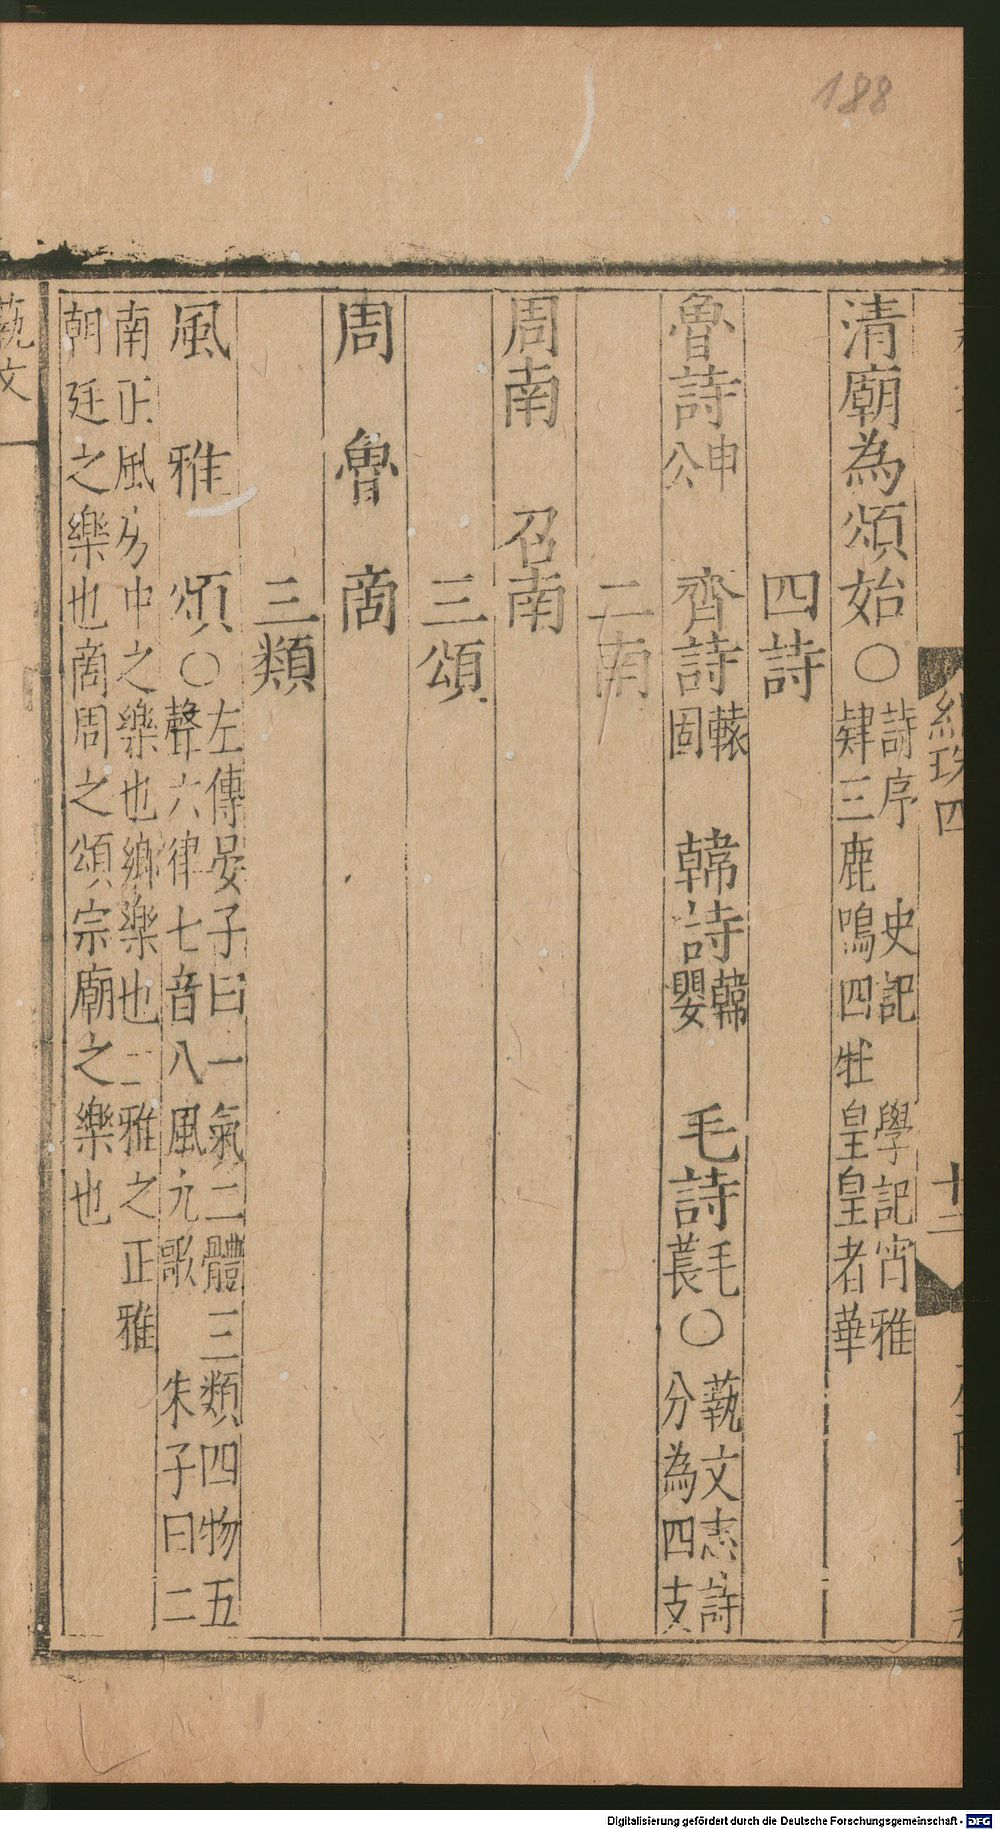 188
清廟為頌始○詩序 史記 學記宵雅
肄三鹿鳴四牡皇皇者華
四詩
魯詩申公 齊詩轅固 韓詩韓嬰 毛詩毛萇○蓺文志詩
分為四
二南
周南 召南
三頌
周 魯 商
三類
風 雅 頌○左傳晏子曰一氣二體三類四物五
聲六律七音八風九歌 朱子曰二
南正風房中之樂也鄉樂也二雅之正雅
朝廷之樂也商周之頌宗廟之樂也
蓺文
紺珠四
十二
Digitalisierung gefördert durch die Deutsche Forschungsgemeinschaft - DFG